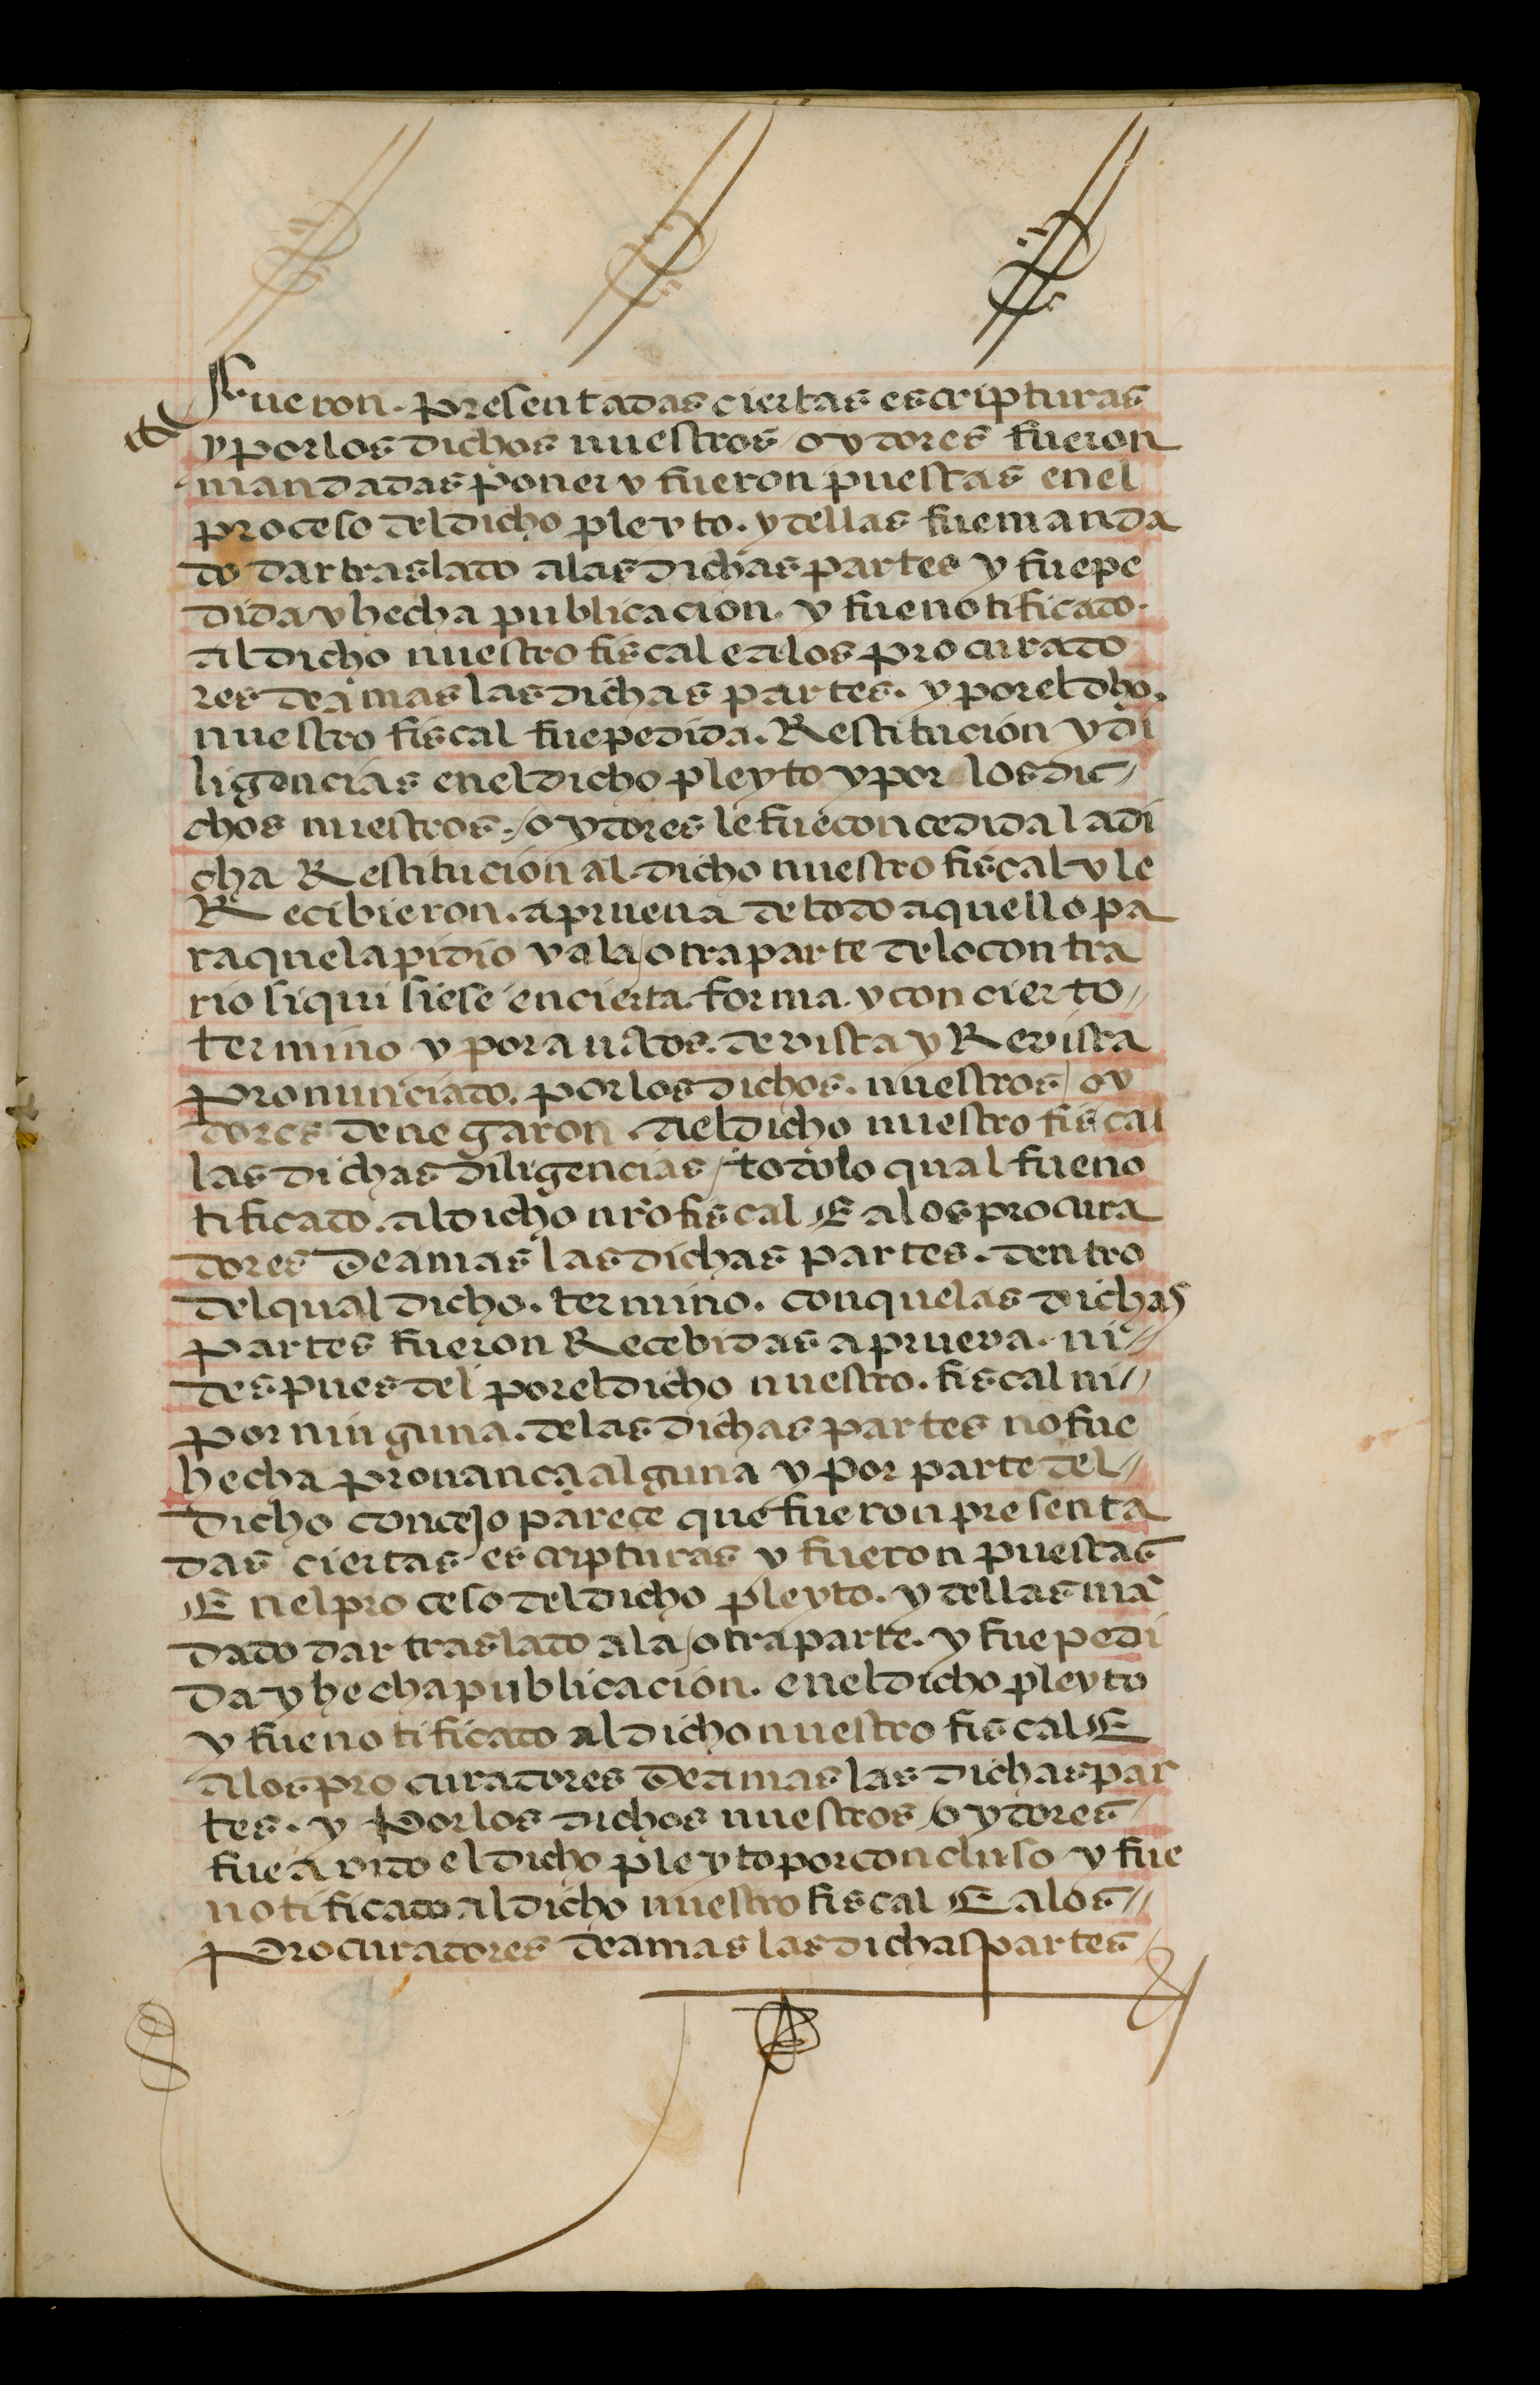 fueron. presentadas ciertas escripturas
y por los dichos nuestros oydores fueron
mandadas poner y fueron puestas en el
proceso del dicho pleyto. y dellas fue manda
do dar traslado a las dichas partes y fue pe
dida y hecha publicacion. y fue notificado.
al dicho nuestro fiscal e a los procurado
res de amas las dichas partes. y por el dho.
nuestro fiscal fue pedida. Restitucion y di
ligencias en el dicho pleyto y por los dic
chos nuestros. oydores le fue concedida la di
cha Restitucion al dicho nuestro fiscal y le
Recibieron. a prueua de todo aquello pa
ra que la pidio y a la otra parte de lo contra
rio si quisiese en cierta forma. y con cierto
termino y por auctos. de vista y Revista
pronunciado. por los dichos. nuestros oy
dores denegaron. a el dicho nuestro fiscal
las dichas diligencias todo lo qual fue no
tificado. al dicho nro fiscal E a los procura
dores de amas las dichas partes. dentro
del qual dicho. termino. con que las dichas
partes fueron Recebidas a prueva. ni
despues del por el dicho nuestro. fiscal ni
por ninguna. de las dichas partes no fue
hecha prouança alguna y por parte del
dicho concejo parece que fueron presenta
das ciertas escripturas y fueron puestas
En el proceso del dicho pleyto. y dellas mã
dado dar traslado a la otra parte. y fue pedi
da y hecha publicacion. en el dicho pleyto
y fue notificado al dicho nuestro fiscal E
a los procuradores de amas las dichas par
tes. y Por los dichos nuestros oydores
fue avido el dicho pleyto por concluso y fue
notificado al dicho nuestro fiscal E a los
Procuradores de amas las dichas partes